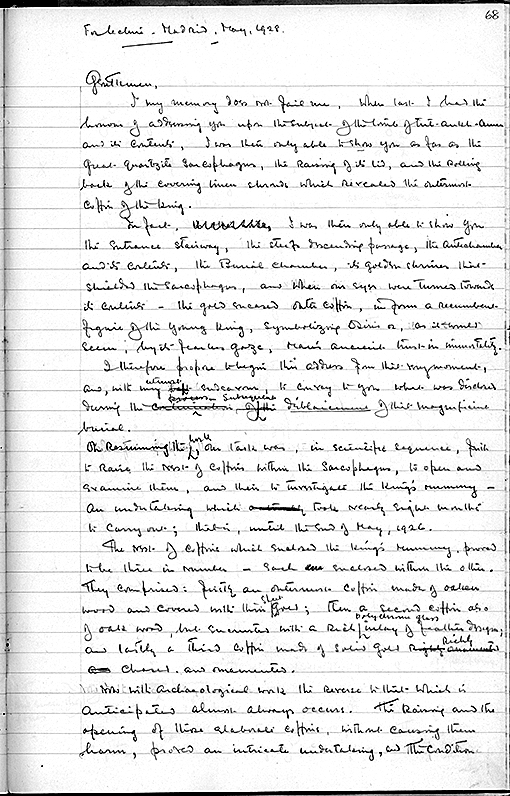 68
For lecture - Madrid, May, 1928.
Gentlemen,
If my memory does not fail me, when last I had the
honour of addressing you upon the subject of the tomb of Tut-ankh-Amen
and its contents, I was then only able to show you as far as the
Great Quartzite Sarcophagus, the raising of its lid, and the rolling
back of the covering linen shrouds which revealed the outermost
Coffin of the King.
In fact, I was then only able to show you
the Entrance stairway, the steep descending passage, the Antechamber
and its contents, the Burial Chamber, its golden shrines that
shielded the Sarcophagus, and when our eyes were turned towards
its contents - the gold encased outer coffin, in form a recumbent
figure of the young King, symbolizing Osiris or, as it would
seem, by its fearless gaze, Man's ancient trust in immortality.
I therefore propose to begin this address from this very moment,
and, with my utmost endeavour, to convey to you what was disclosed
during the process subsequent of the déblaiement of this magnificent
burial.
On Resuming the work our task was, in scientific sequence, first
to raise the nest of coffins within the Sarcophagus, to open and
examine them, and then to investigate the King's mummy -
An undertaking which took nearly eight months
to carry out; that is, until the end of May, 1926.
The nest of coffins which enclosed the King's mummy, proved
to be three in number - each enclosed within the other.
They comprised: firstly an outermost coffin made of oaken
wood and covered with thin sheet gold; then a second coffin also
of oak wood, but encrusted with a rich polychrome glass inlay of feather design;
and lastly a third coffin made of solid gold richly
chased and ornamented.
Now with Archaeological work the reverse to that which is
anticipated almost always occurs. The raising and the
opening of those elaborate coffins, without causing them
harm, proved an intricate undertaking, and the condition